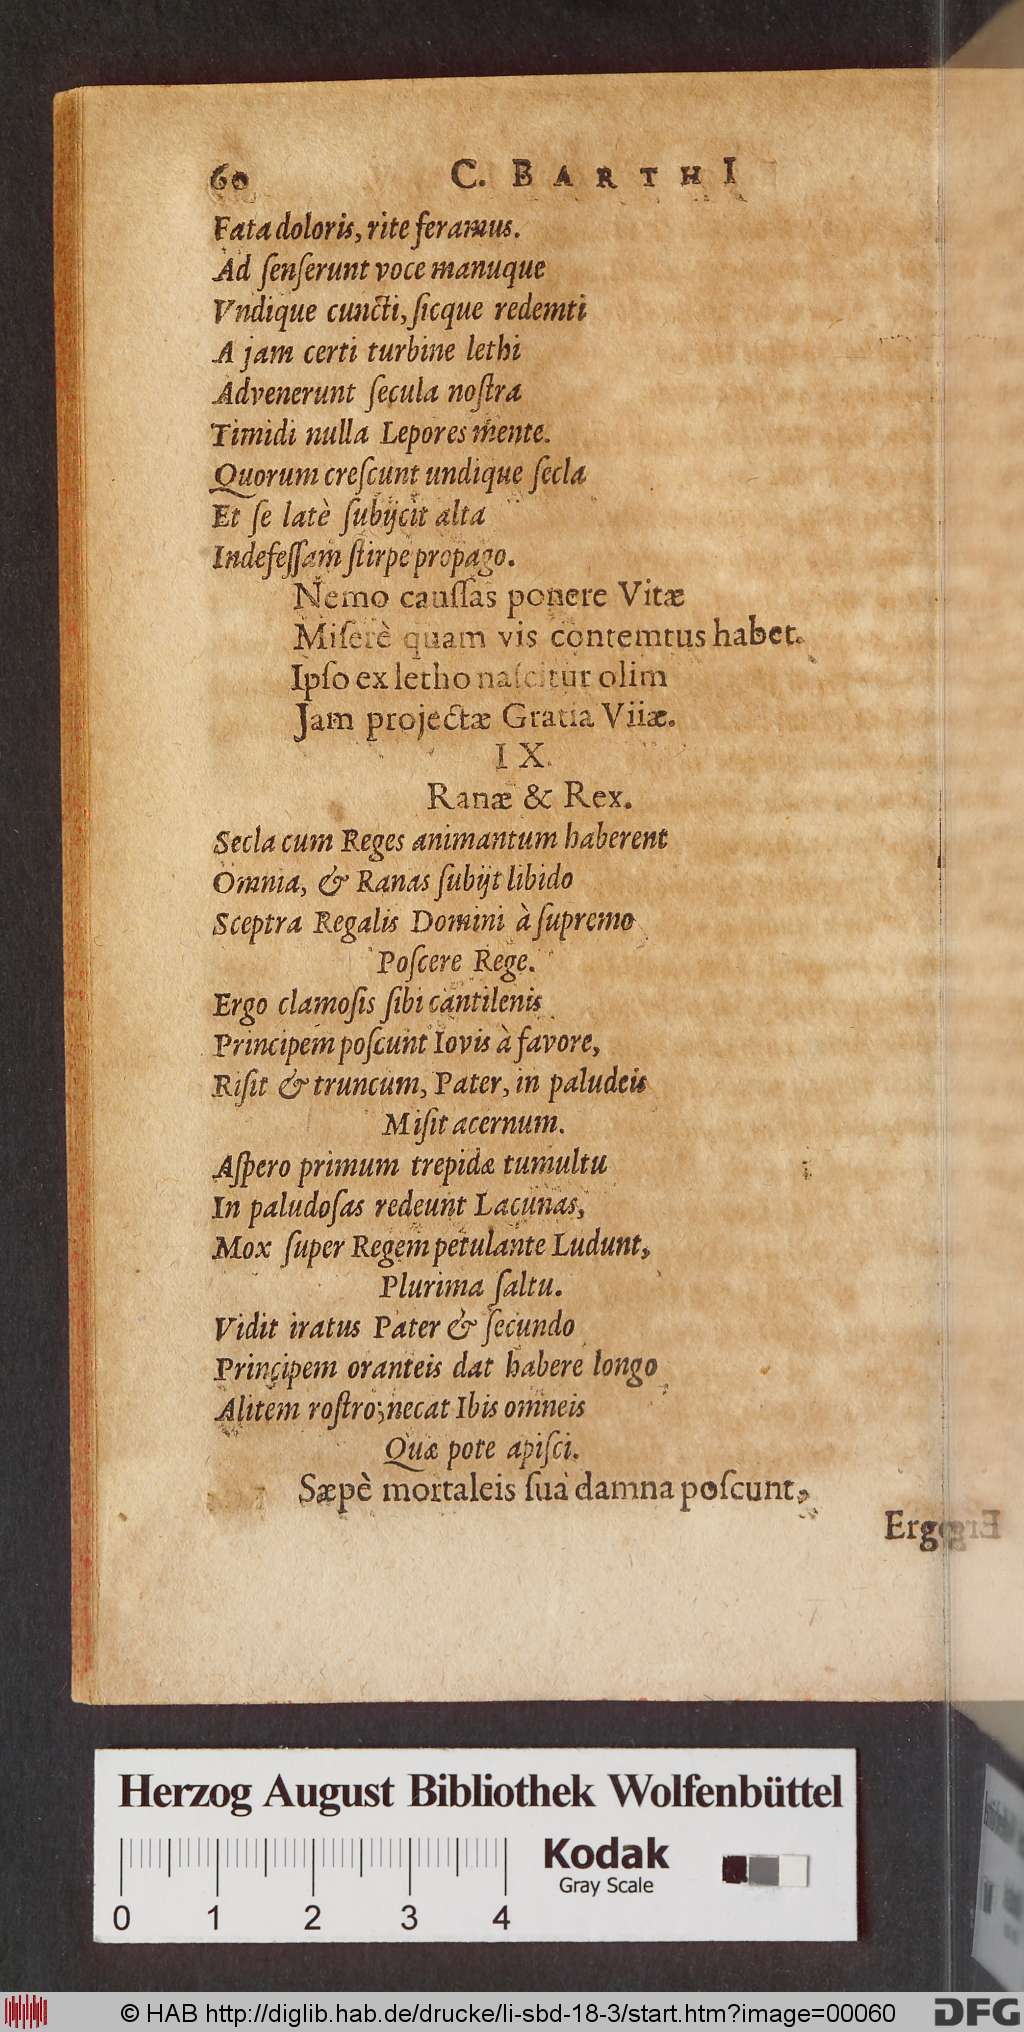 60 C. BARTHI
Fata doloris, rite feramus.
Ad ſenſerunt voce manuque
Vndique cuncti, ſicque redemti
A jam certi turbine lethi
Advenerunt ſecula noſtra
Timidi nulla Lepores mente.
Quorum creſcunt undique ſecla
Et ſe latè ſubijcit alta
Indefeſſam ſtirpe propago.
Nemo cauſſas ponere Vitæ
Miſerè quam vis contemtus habet.
Ipſo ex letho naſcitur olim
Jam projectæ Gratia Viiæ.
IX.
Ranæ & Rex.
Secla cum Reges animantum haberent
Omnia, & Ranas ſubijt libido
Sceptra Regalis Domini à ſupremo
Poſcere Rege.
Ergo clamoſis ſibi cantilenis
Principem poſcunt Iovis à favore,
Riſit & truncum, Pater, in paludeis
Miſit acernum.
Aſpero primum trepidæ tumultu
In paludoſas redeunt Lacunas,
Mox ſuper Regem petulante Ludunt,
Plurima ſaltu.
Vidit iratus Pater & ſecundo
Principem oranteis dat habere longo
Alitem roſtro; necat Ibis omneis
Quæ pote apiſci.
Sæpè mortaleis ſua damna poſcunt,
Ergo
Herzog August Bibliothek Wolfenbüttel
Kodak
Gray Scale
0 1 2 3 4
© HAB http://diglib.hab.de/drucke/li-sbd-18-3/start.htm?image=00060
DFG